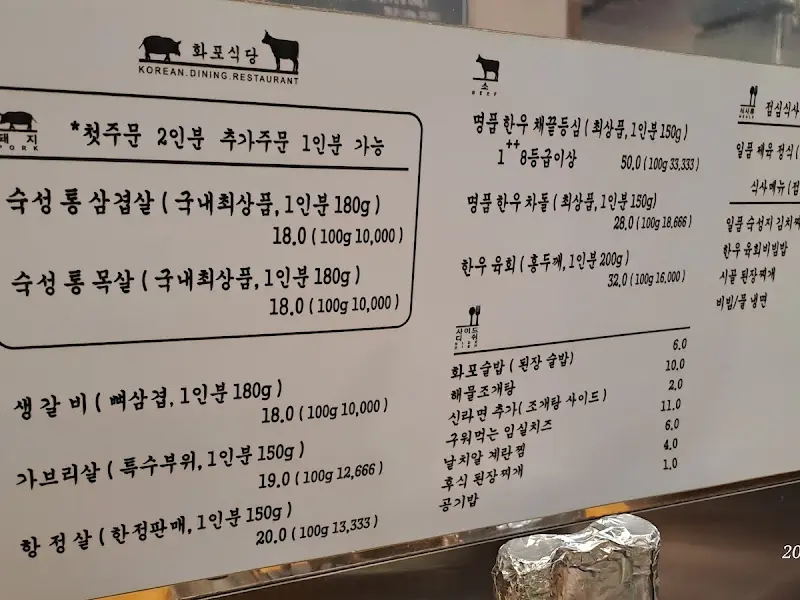 화포식당
KOREAN.DINING.RESTAURANT
돼지
PORK
*첫주문 2인분 추가주문 1인분 가능
숙성 통 삼겹살 ( 국내최상품, 1인분 180g )
18.0 ( 100g 10,000 )
숙성 통 목살 ( 국내최상품, 1인분 180g )
18.0 ( 100g 10,000 )
생 갈 비 ( 뼈삼겹, 1인분 180g )
18.0 ( 100g 10,000 )
가브리살 ( 특수부위, 1인분 150g )
19.0 ( 100g 12,666 )
항 정 살 ( 한정판매, 1인분 150g )
20.0 ( 100g 13,333 )
소
BEEF
명품 한우 채끝등심 ( 최상품, 1인분 150g )
1++8등급이상 50.0 ( 100g 33,333 )
명품 한우 차돌 ( 최상품, 1인분 150g )
28.0 ( 100g 18,666 )
한우 육회 ( 홍두깨, 1인분 200g )
32.0 ( 100g 16,000 )
사이드
디쉬
SIDE
DISH
화포술밥 ( 된장 술밥 ) 6.0
해물조개탕 10.0
신라면 추가 ( 조개탕 사이드 ) 2.0
구워먹는 임실치즈 11.0
날치알 계란찜 6.0
후식 된장찌개 4.0
공기밥 1.0
식사류
점심식사
일품 제육 정식 (
식사메뉴 ( 점
일품 숙성지 김치찌
한우 육회비빔밥
시골 된장찌개
비빔/물 냉면
20